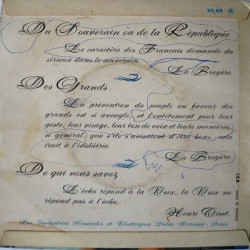 Du Souverain ou de la République
Le caractère des Français demande du
sérieux dans le souverain.
La Bruyère.
Des Grands
La prévention du peuple en faveur des
grands est si aveugle, et l'entêtement pour leur
geste, leur visage, leur ton de voix et leurs manières,
si général, que s'ils s'avisaient d'être bons, cela
irait à l'idolâtrie.
La Bruyère.
De qui vous savez
L'écho répond à la Voix, la Voix ne
répond pas à l'écho.
Henri Tisot.